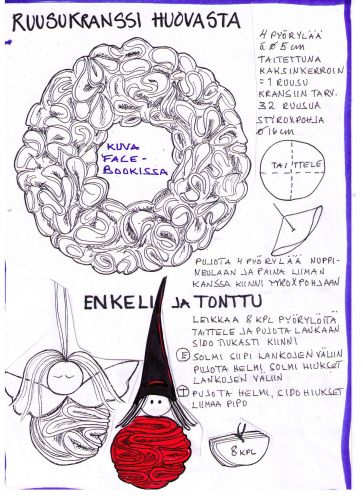 RUUSUKRANSSI HUOVASTA
4 PYÖRYLÄÄ
à Ø 5 cm
TAITETTUNA
KAKSINKERROIN
= 1 RUUSU
KRANSIIN TARV.
32 RUUSUA
STYROXPOHJA
Ø 16cm
KUVA
FACE-
BOOKISSA
TAITTELE
PUJOTA 4 PYÖRYLÄÄ NUPPI-
NEULAAN JA PAINA LIIMAN
KANSSA KIINNI TYROXPOHJAAN
ENKELI JA TONTTU
LEIKKAA 8 KPL PYÖRYLÖITÄ
TAITTELE JA PUJOTA LANKAAN
SIDO TIUKASTI KIINNI
E SOLMI SIIPI LANKOJEN VÄLIIN
PUJOTA HELMI, SOLMI HIUKSET
LANKOJEN VÄLIIN
T PUJOTA HELMI, SIDO HIUKSET
LIIMAA PIPO
8 KPL